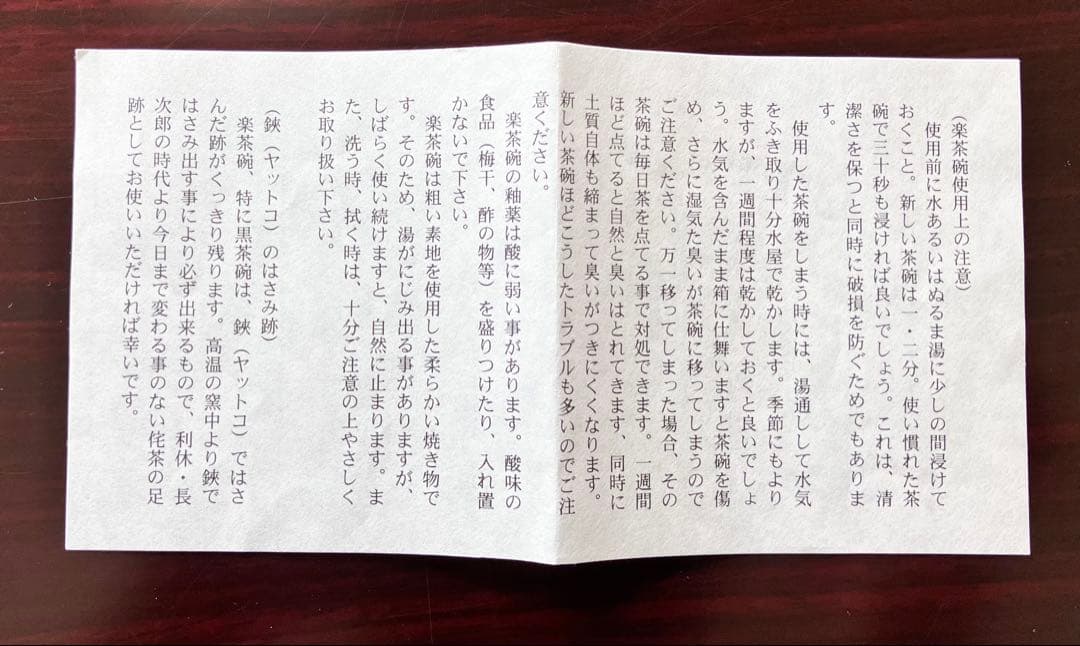 （楽茶碗使用上の注意）
使用前に水あるいはぬるま湯に少しの間浸けて
おくこと。新しい茶碗は一・二分。使い慣れた茶
碗で三十秒も浸ければ良いでしょう。これは、清
潔さを保つと同時に破損を防ぐためでもありま
す。
使用した茶碗をしまう時には、湯通しして水気
をふき取り十分水屋で乾かします。季節にもより
ますが、一週間程度は乾かしておくと良いでしょ
う。水気を含んだまま箱に仕舞いますと茶碗を傷
め、さらに湿気た臭いが茶碗に移ってしまうので
ご注意ください。万一移ってしまった場合、その
茶碗は毎日茶を点てる事で対処できます。一週間
ほど点てると自然と臭いはとれてきます、同時に
土質自体も締まって臭いがつきにくくなります。
新しい茶碗ほどこうしたトラブルも多いのでご注
意ください。
楽茶碗の釉薬は酸に弱い事があります。酸味の
食品（梅干、酢の物等）を盛りつけたり、入れ置
かないで下さい。
楽茶碗は粗い素地を使用した柔らかい焼き物で
す。そのため、湯がにじみ出る事がありますが、
しばらく使い続けますと、自然に止まります。ま
た、洗う時、拭く時は、十分ご注意の上やさしく
お取り扱い下さい。
（鋏（ヤットコ）のはさみ跡）
楽茶碗、特に黒茶碗は、鋏（ヤットコ）ではさ
んだ跡がくっきり残ります。高温の窯中より鋏で
はさみ出す事により必ず出来るもので、利休・長
次郎の時代より今日まで変わる事のない侘茶の足
跡としてお使いいただければ幸いです。